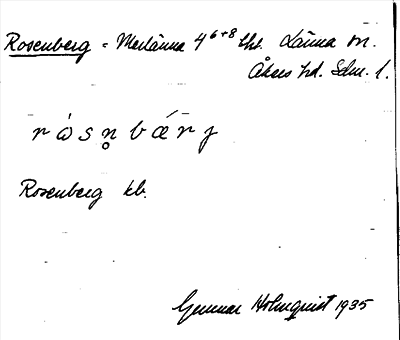 Rosenberg = Merlänna 4 6+8 tht. Länna sn.
Åkers hd. Sdm. l.
r ὠ s n̥ b ǽ r ȷ
Rosenberg kb.
Gunnar Holmquist 1935